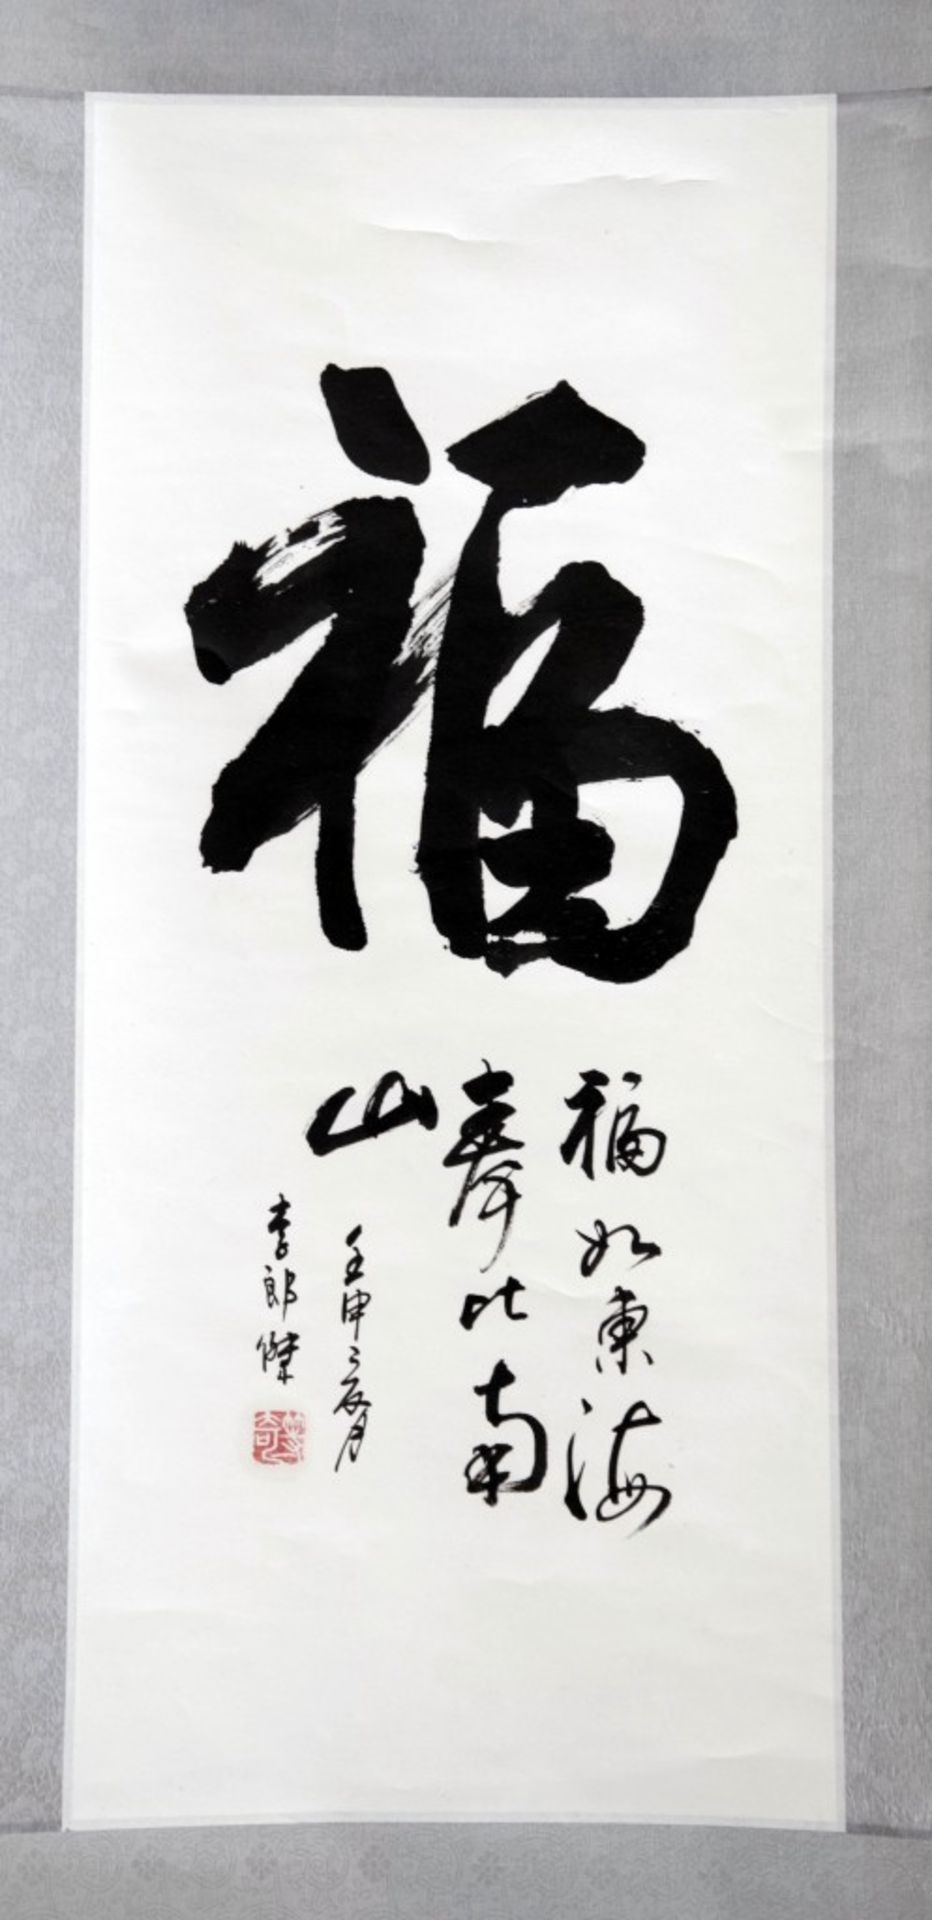 福
福如東海
壽比南
山
壬申夏月
李郎傑